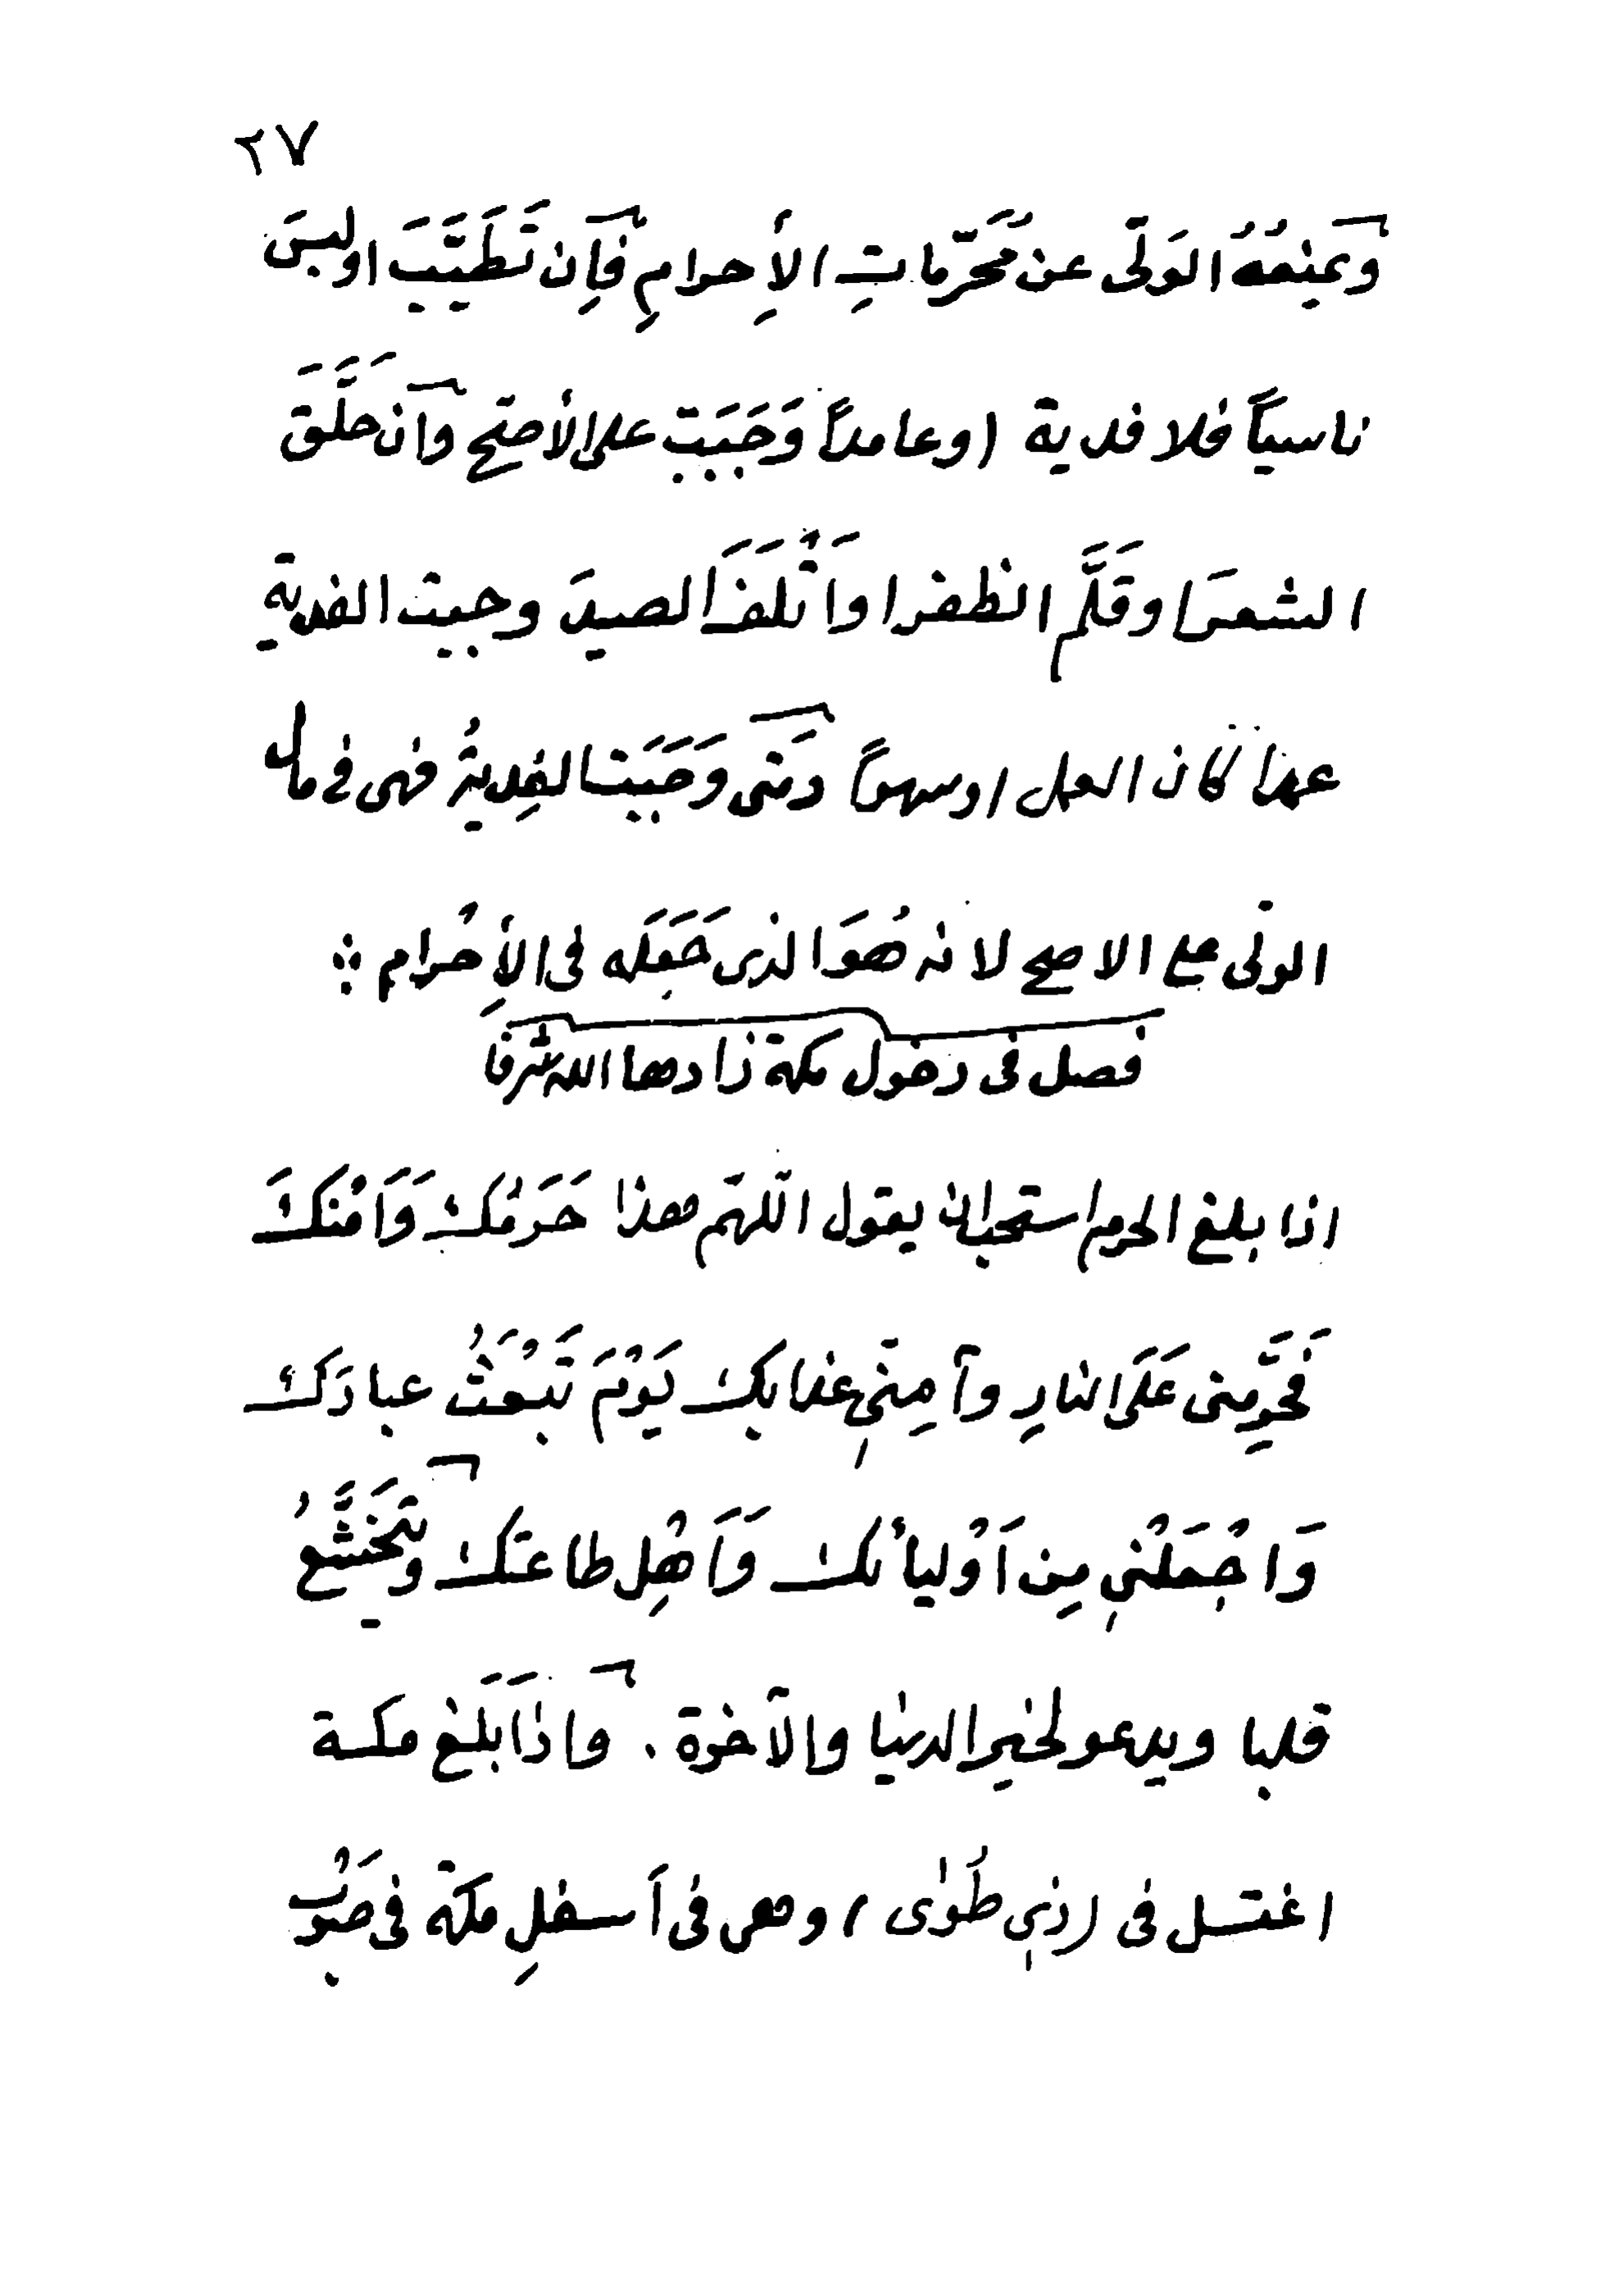 ٢٧
ويمنعُهُ الوَلّى عن مُحَرَّمَاتِ الأِحرامِ فَاِن تَطَيَّبَ اولبسَ
ناسياً فلا فدية (وعامداً وَجَبَت على الأصَحِّ وَان حَلَّقَ
الشعرَ اوقَلَّم الظفرا واَتْلَفَ الصيدَ وجبت الفدية
عمدا كان العمل اوسهواً وَمَتى وَجَبَت الفِديةُ فهى فى مال
الولّى مع الاصح لانه هُوَ الذى جَعَلَه فى الأِحْرامِ
فصل فى دخول مكة زادها الله شرفا
اذا بلغ الحرم استحب ان يقول اللهّم هذا حَرَمُكَ وَاَمْنُكَ
فَحَرِّمنى عَلَى النارِ وآمِنّى عذابك يَوْمَ تَبْعَثُ عبادَكَ
وَاجْعَلْنى مِن اَوْليائك وَاَهْلِ طاعتك وَيَخَشَّعُ
قلبا ويدعو لخير الدنيا والآخرة. واذا بَلَغ مكة
اغتسل فى (ذى طُوٰى) وهى فى اَسفلِ مكة فى صَوْب